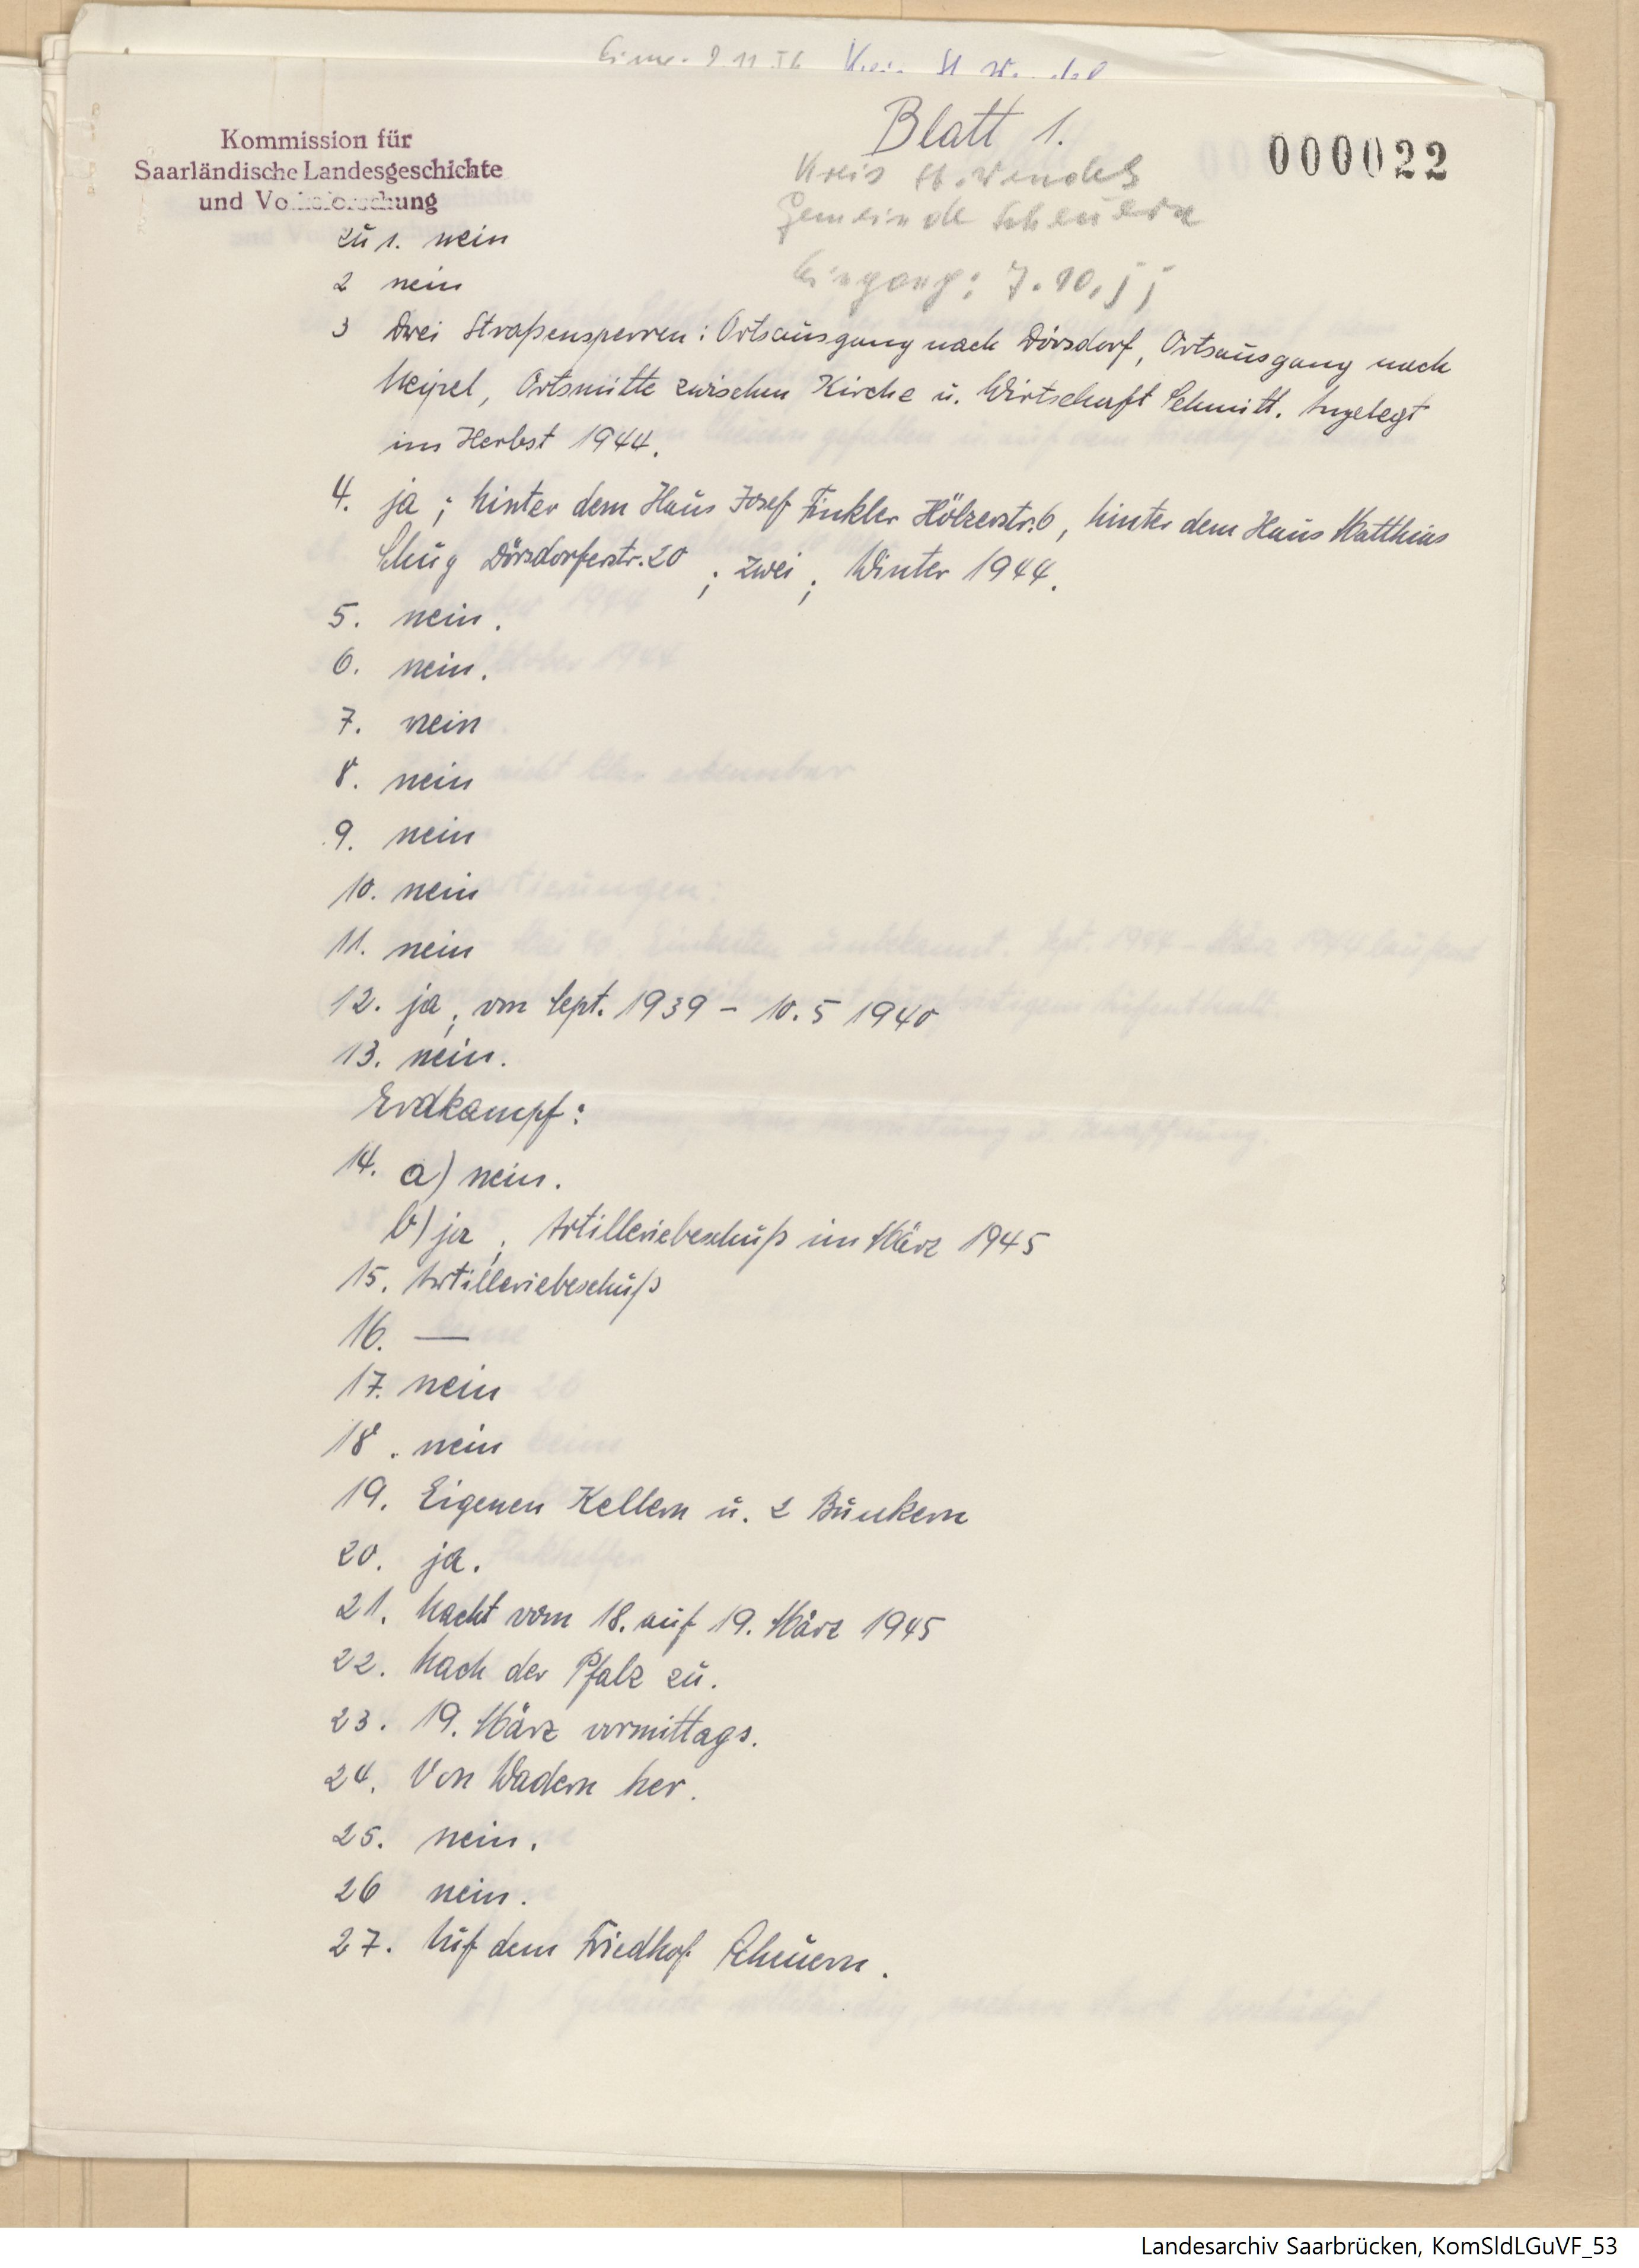 Blatt 1.
000022
Kommission für
Saarländische Landesgeschichte
und Volksforschung
Kreis St. Wendel
Gemeinde Scheuern
Eingang: 7.10.55
zu 1. nein
2 nein
3 Drei Straßensperren: Ortsausgang nach Dörsdorf, Ortsausgang nach
Neipel, Ortsmitte zwischen Kirche u. Wirtschaft Schmitt. Angelegt
im Herbst 1944.
4. ja; hinter dem Haus Josef Finkler Hölzerstr. 6, hinter dem Haus Matthias
Schug Dörsdorferstr. 20; zwei; Winter 1944.
5. nein.
6. nein.
7. nein
8. nein
9. nein
10. nein
11. nein
12. ja; von Sept. 1939 - 10.5 1940
13. nein.
Erdkampf:
14. a) nein.
b) ja; Artilleriebeschuß im März 1945
15. Artilleriebeschuß
16. —
17. nein
18. nein
19. Eigenen Kellern u. 2 Bunkern
20. ja.
21. Nacht vom 18. auf 19. März 1945
22. Nach der Pfalz zu.
23. 19. März vormittags.
24. Von Wadern her.
25. nein.
26 nein.
27. Auf dem Friedhof Scheuern.
Landesarchiv Saarbrücken, KomSldLGuVF_53